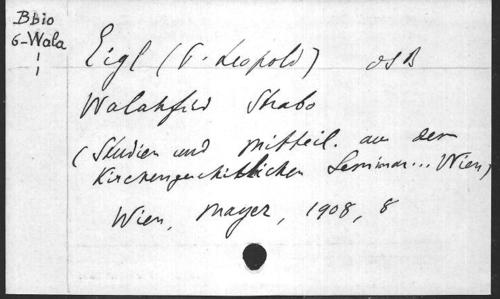 Bbio
6-Wala
Eigl (P. Leopold) OSB
Walahfrid Strabo
(Studien und Mitteil. aus dem
Kirchengeschichtlichen Seminar... Wien)
Wien, Mayer, 1908, 8